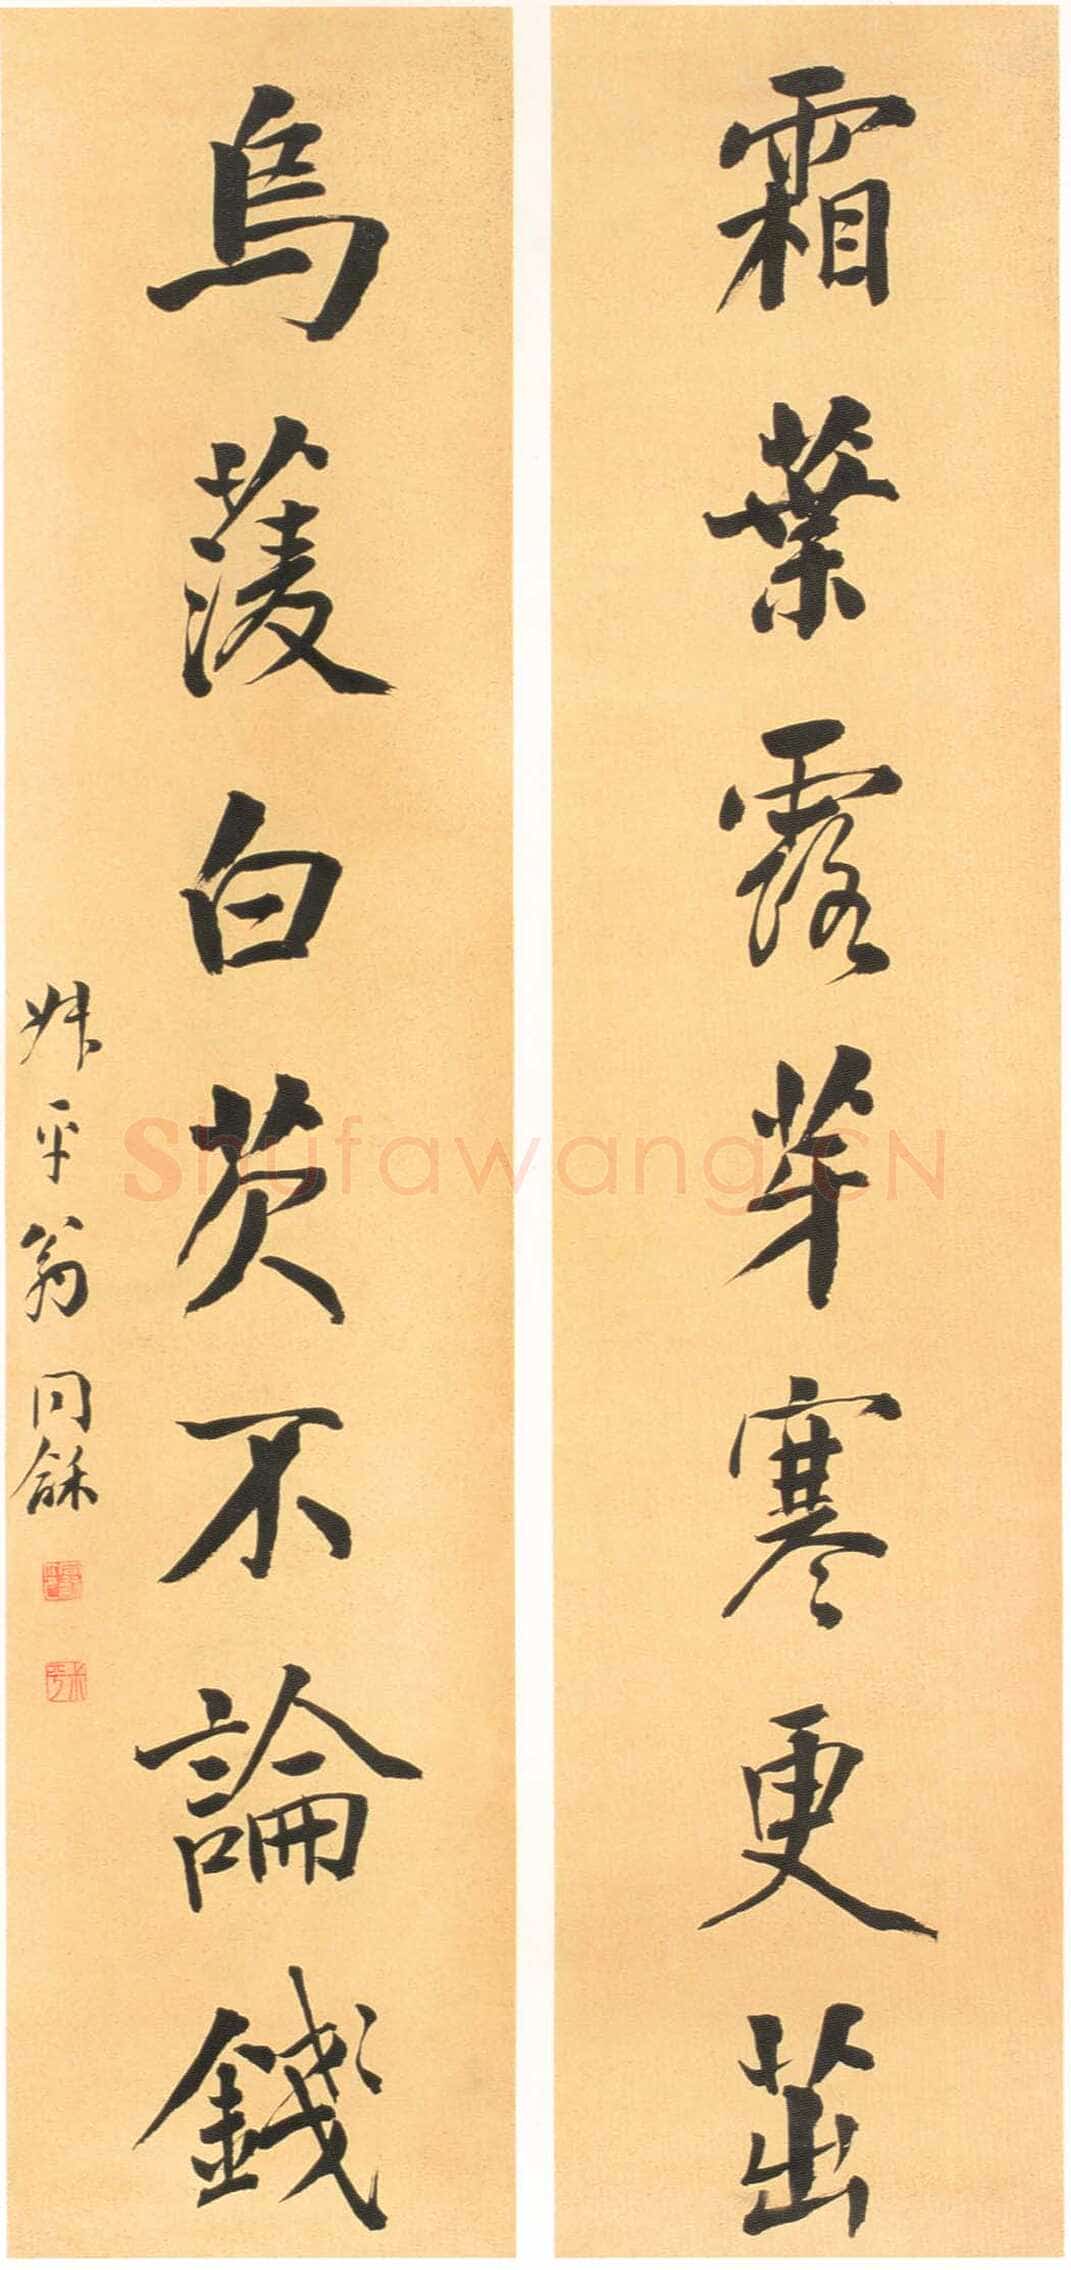 霜葉露芽寒更茁
烏蔆白芡不論錢
叔平翁同龢
Shufawang.CN